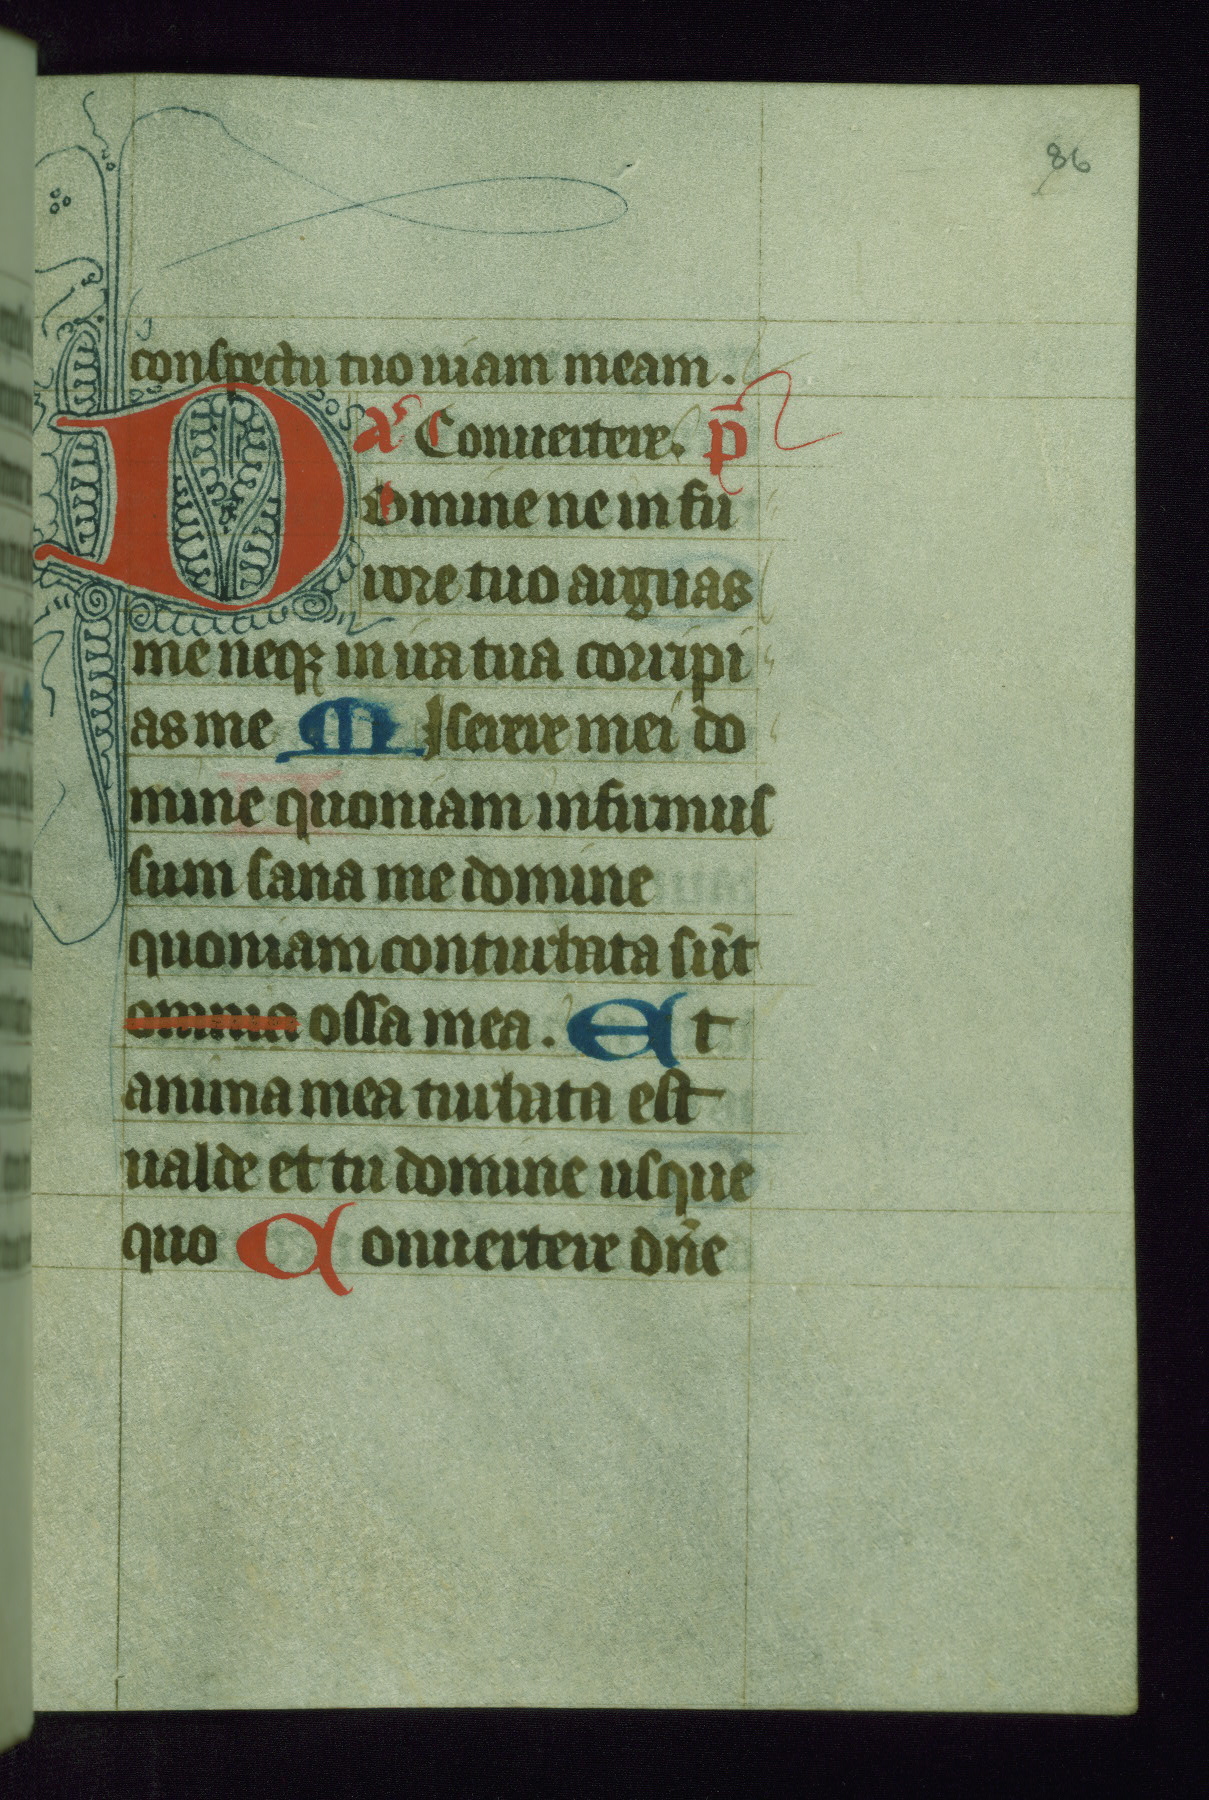 86
conspectu tuo uiam meam.
a᷒ Conuertere. p̄
Domine ne in fu
rore tuo arguas
me neqꝫ in ira tua corripi
as me Miserere mei do
mine quoniam infirmus
sum sana me domine
quoniam conturbata su̅t
omnia ossa mea. Et
anima mea turbata est
ualde et tu domine usque
quo Conuertere dn̅e